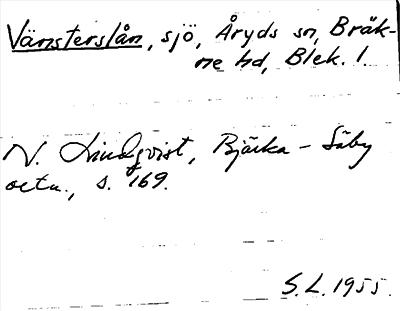 Vänsterslån, sjö, Åryds sn, Bräk-
ne hd, Blek. l.
N. Lindqvist, Bjärka-Säby
ortn., s. 169.
S.L. 1955.